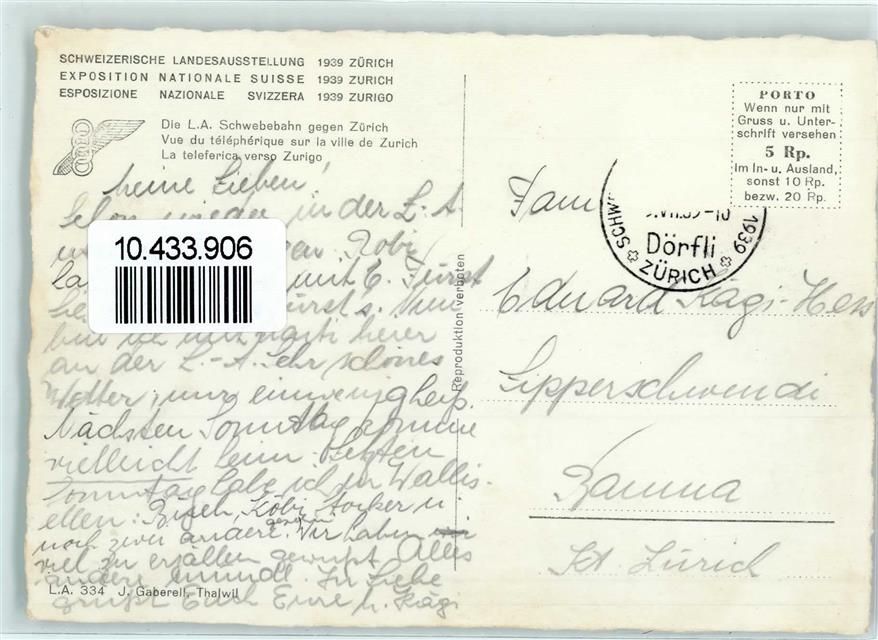 SCHWEIZERISCHE LANDESAUSSTELLUNG 1939 ZÜRICH
EXPOSITION NATIONALE SUISSE 1939 ZURICH
ESPOSIZIONE NAZIONALE SVIZZERA 1939 ZURIGO
Die L.A. Schwebebahn gegen Zürich
Vue du téléphérique sur la ville de Zurich
La teleferica verso Zurigo
Meine Lieben!
Schon wieder in der L.-A
Kobi
10.433.906
mit E. Fürst
Fürst's. Nun
bin ich mit
an der L.-A. Sehr schönes
Wetter, nur ein wenig heiß.
Nächsten Sonntag komme
vielleicht heim. Letzten
Sonntag habe ich in Wallis-
ellen: Kobi Stocker u.
noch zwei andere. Wir haben
viel zu erzählen gewußt. Alles
andere mündl. In Liebe
grüßt Euch Eure H. Kägi
L.A. 334 J. Gaberell, Thalwil
Reproduktion verboten
PORTO
Wenn nur mit
Gruss u. Unter-
schrift versehen
5 Rp.
im In- u. Ausland,
sonst 10 Rp.
bezw. 20 Rp.
SCHW 1939
Dörfli
ZÜRICH
Fam
Eduard Kägi-Hess
Lipperschwendi
Bauma
Kt. Zürich